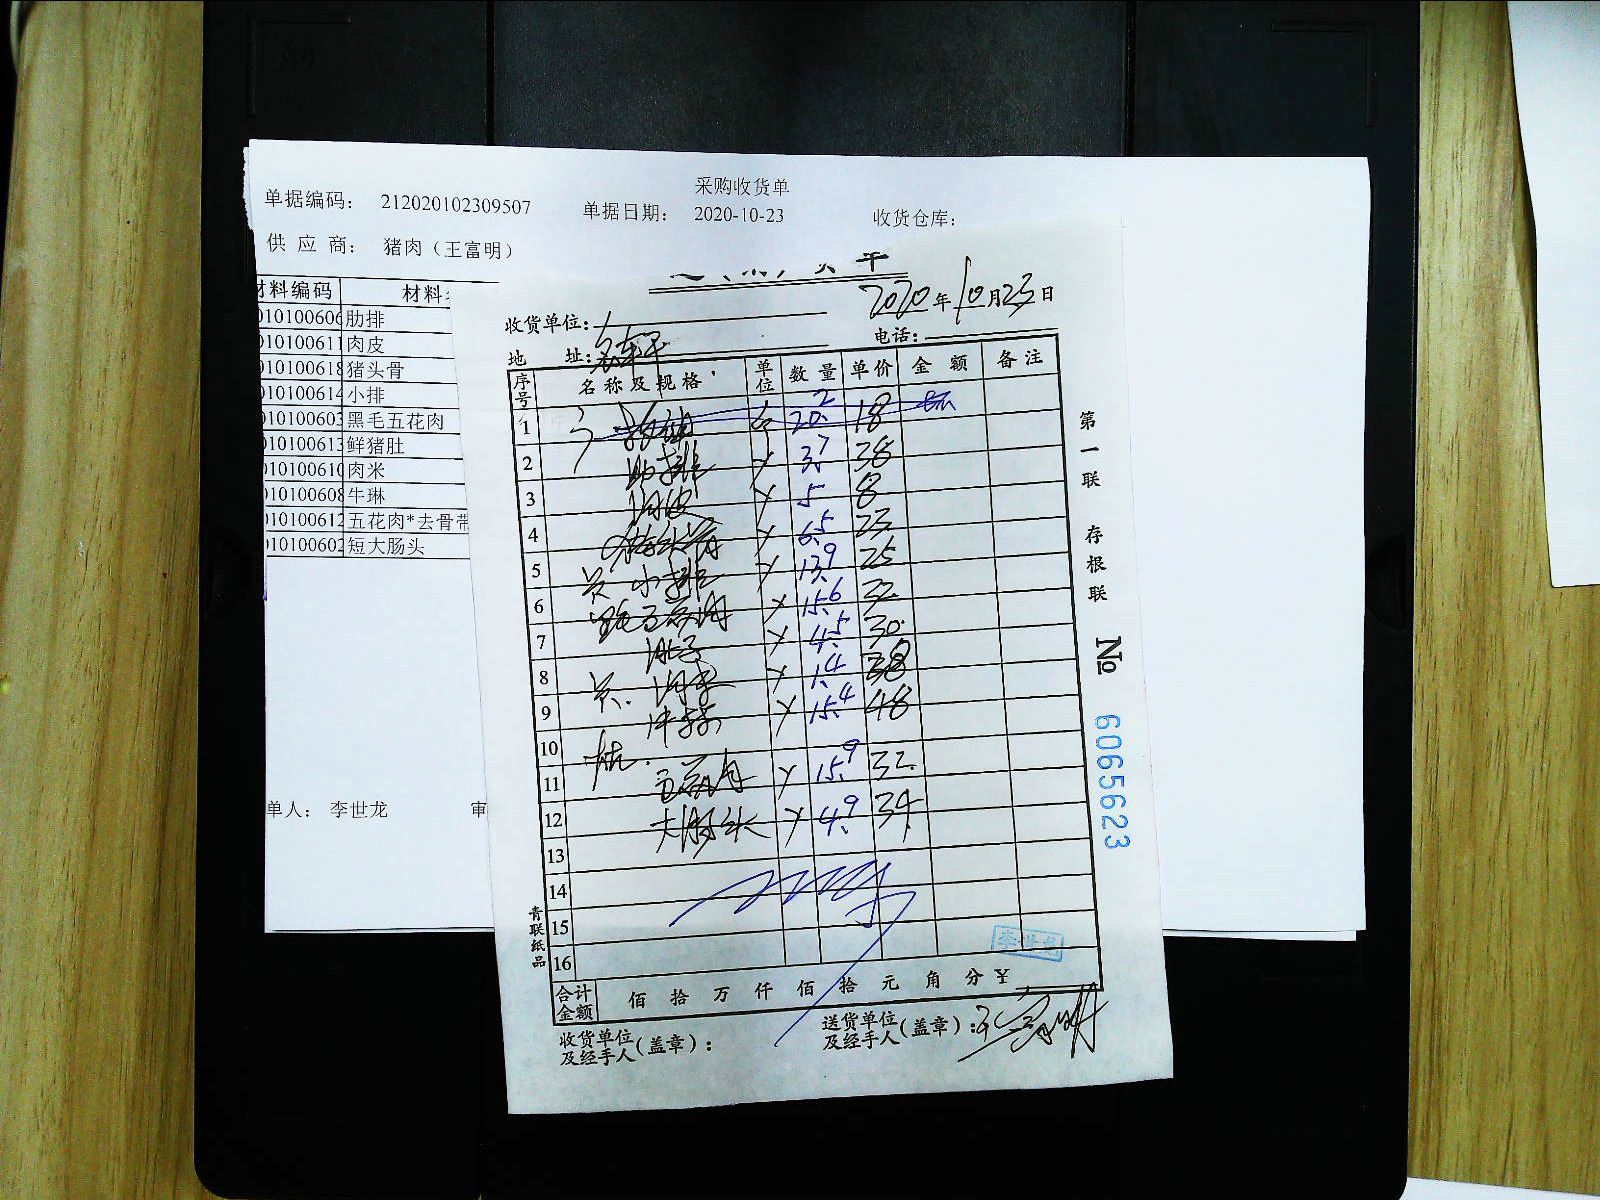 采购收货单
单据编码： 212020102309507 单据日期： 2020-10-23 收货仓库：
供 应 商： 猪肉（王富明）
材料编码 材料
010100606 肋排
010100611 肉皮
010100618 猪头骨
010100614 小排
010100603 黑毛五花肉
010100613 鲜猪肚
010100610 肉米
010100608 牛琳
010100612 五花肉*去骨带
010100602 短大肠头
单人： 李世龙 审
2020年10月23日
收货单位：
电话：
地 址：
序号 名称及规格 单位 数量 单价 金额 备注
1 20.2 18
2 肋排 3.7 38
3 肉皮 5 8
4 6.5 23
5 小排 13.9 25
6 黑毛五花肉 15.6 32
7 肚子 4.5 30
8 1.4 38
9 牛琳 15.4 48
10
11 五花肉 15.9 32
12 大肠头 4.9 34
13
14
15
16
合计金额 佰 拾 万 仟 佰 拾 元 角 分 ¥
收货单位及经手人(盖章)：
送货单位及经手人(盖章)：王富明
李世龙
第一联 存根联
№ 6065623
青联纸品